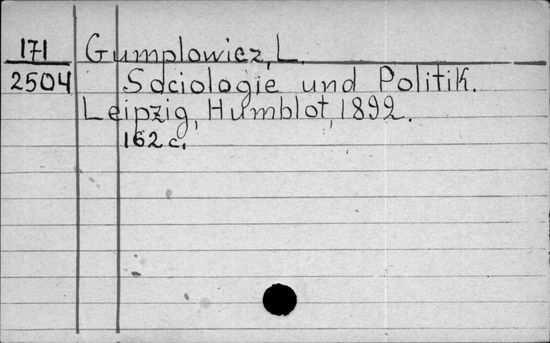 171 Gumplowicz, L.
2504 Sociologie und Politik.
Leipzig, Humblot, 1892.
162 c.